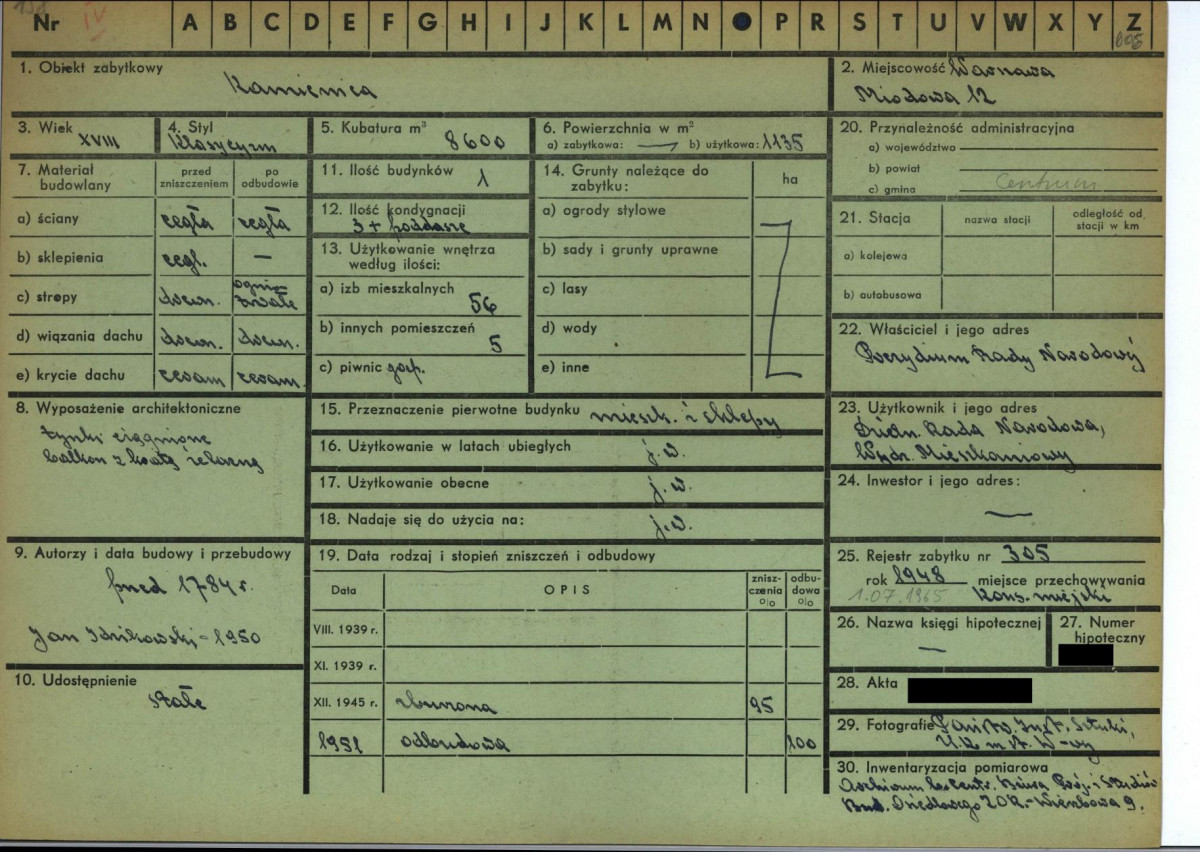 138 IV
Nr A B C D E F G H I J K L M N P R S T U V W X Y Z
1. Obiekt zabytkowy
Kamienica
2. Miejscowość Warszawa
Miodowa 12
3. Wiek
XVIII
4. Styl
klasycyzm
5. Kubatura m³
8600
6. Powierzchnia w m²
a) zabytkowa: — b) użytkowa: 1135
7. Materiał budowlany
przed zniszczeniem
po odbudowie
a) ściany cegła cegła
b) sklepienia cegł. —
c) stropy drewn. ognio-
trwałe
d) wiązania dachu drewn. drewn.
e) krycie dachu ceram ceram.
8. Wyposażenie architektoniczne
tynki ciągnione
balkon z kratą żelazną
9. Autorzy i data budowy i przebudowy
przed 1784 r.
Jan Idzikowski - 1950
10. Udostępnienie
stałe
11. Ilość budynków
1
12. Ilość kondygnacji
3 + poddasze
13. Użytkowanie wnętrza
według ilości:
a) izb mieszkalnych
56
b) innych pomieszczeń
5
c) piwnic gosp.
14. Grunty należące do
zabytku:
ha
a) ogrody stylowe
b) sady i grunty uprawne
c) lasy
d) wody
e) inne
15. Przeznaczenie pierwotne budynku mieszk. i sklepy
16. Użytkowanie w latach ubiegłych j.w.
17. Użytkowanie obecne j.w.
18. Nadaje się do użycia na: j.w.
19. Data rodzaj i stopień zniszczeń i odbudowy
Data OPIS znisz-
czenia
o|o odbu-
dowa
o|o
VIII. 1939 r.
XI. 1939 r.
XII. 1945 r. zburzona 95
1951 odbudowa 100
20. Przynależność administracyjna
a) województwo
b) powiat
c) gmina Centrum
21. Stacja
nazwa stacji
odległość od.
stacji w km
a) kolejowa
b) autobusowa
22. Właściciel i jego adres
Prezydium Rady Narodowej
23. Użytkownik i jego adres
Dzieln. Rada Narodowa,
Wydz. Mieszkaniowy
24. Inwestor i jego adres:
—
25. Rejestr zabytku nr 305
rok 1948 miejsce przechowywania
1.07.1965 Kons. miejski
26. Nazwa księgi hipotecznej
—
27. Numer
hipoteczny
28. Akta
29. Fotografie Państw. Inst. Sztuki,
U.K m st. W-wy
30. Inwentaryzacja pomiarowa
Archiwum Centr. Biura Proj. i Studiów
Bud. Osiedlowego ZOR. - Wierzbowa 9.